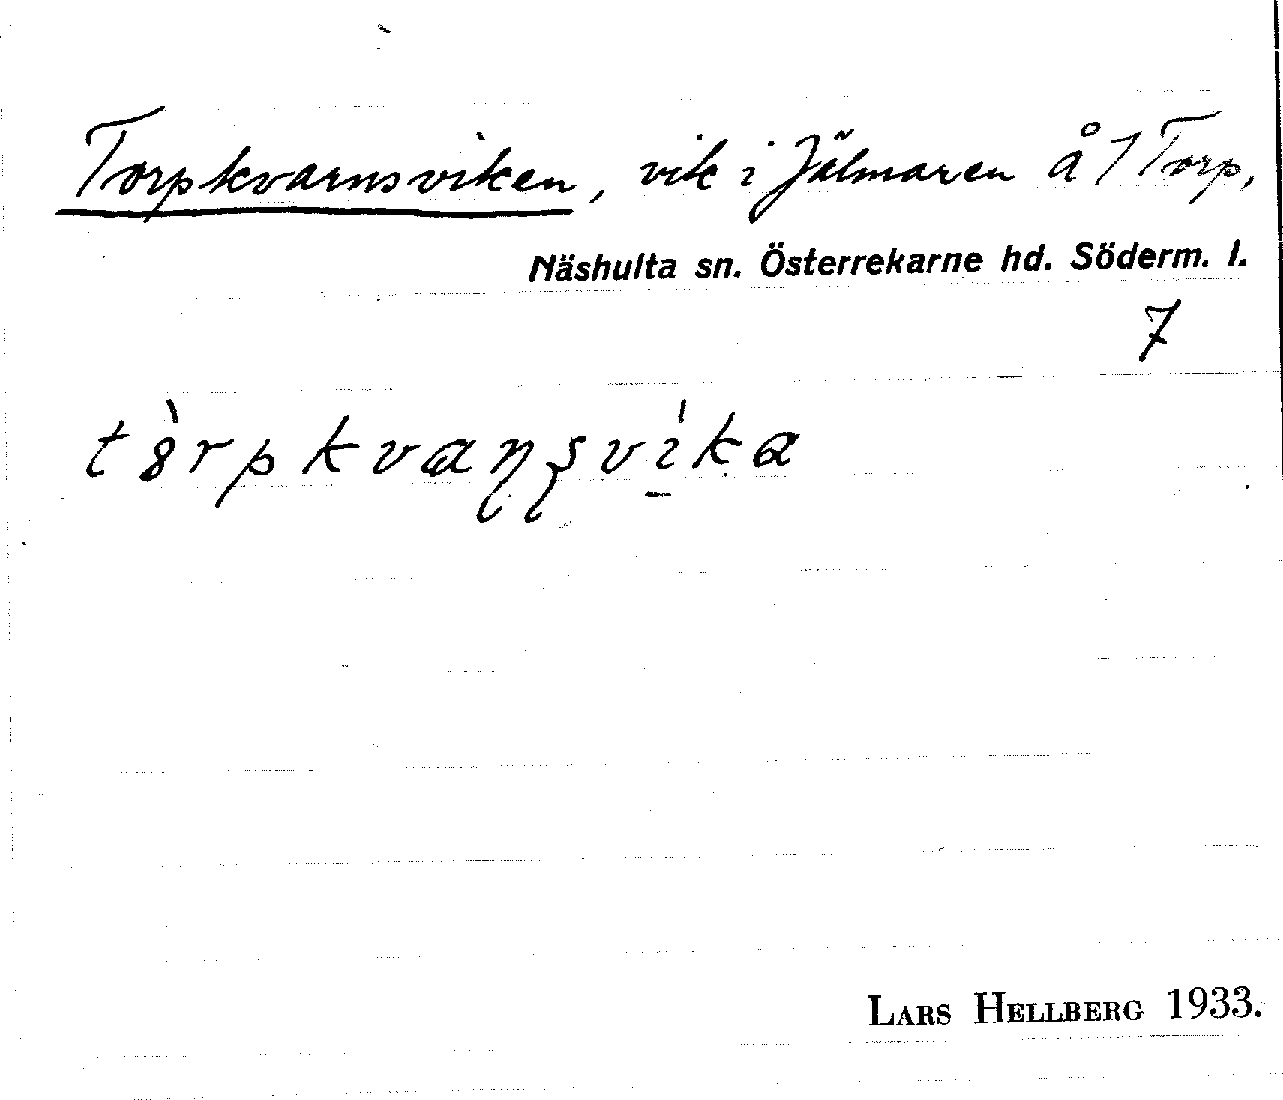 Torpkvarnsviken, vik i Jälmaren å 1 Torp,
Näshulta sn. Österrekarne hd. Söderm. l.
7
LARS HELLBERG 1933.